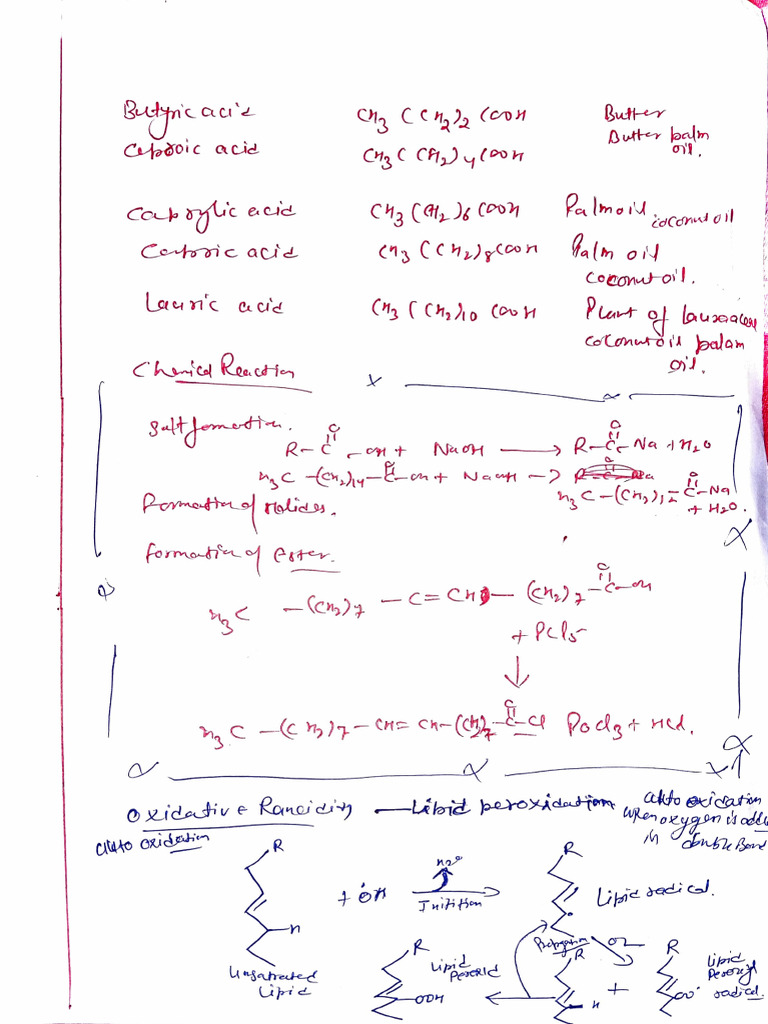 Butyric acid CH3 (CH2)2 COOH Butter
Caproic acid CH3 (CH2)4 COOH Butter palm oil.
Caprylic acid CH3 (CH2)6 COOH Palm oil coconut oil
Capric acid CH3 (CH2)8 COOH Palm oil coconut oil.
Lauric acid CH3 (CH2)10 COOH Plant of Lauraaceae
coconut oil palam oil.
Chemical Reaction
Salt formation.
R-C-OH + NaOH → R-C-Na + H2O
H3C-(CH2)14-C-OH + NaOH →
H3C-(CH2)12-C-Na
+ H2O.
Formation of Halides.
Formation of Ester.
H3C -(CH2)7 -C=CH - (CH2)7 -C-OH
+ PCl5
↓
H3C -(CH2)7 -CH= CH-(CH2)7 -C-Cl POCl3 + HCl.
Oxidative Rancidity — Lipid peroxidation auto oxidation
when oxygen is added
in double Bond
auto oxidation
R
+ OH
H2O
Initition
R
Lipid radical.
H
Unsatrated
Lipid
Propogation
O2
R
OOH
Lipid
Peroxid
R
H
+
R
OO°
Lipid
Peroxyl
radical.